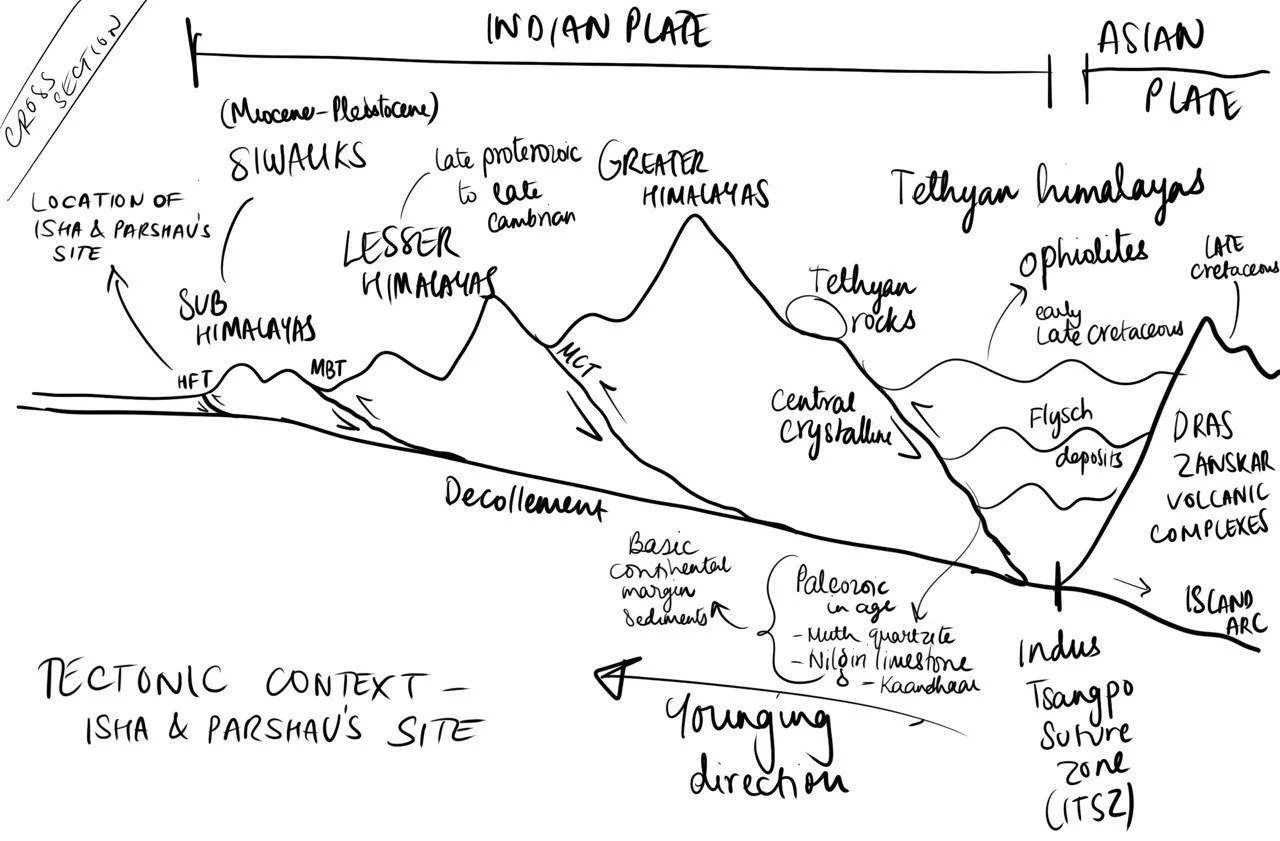 CROSS
SECTION
INDIAN PLATE
ASIAN
PLATE
(Miocene-Pleistocene)
SIWALIKS
LOCATION OF
ISHA & PARSHAV'S
SITE
SUB
HIMALAYAS
late proterozoic
to late
Cambrian
LESSER
HIMALAYAS
GREATER
HIMALAYAS
Tethyan himalayas
Tethyan
rocks
Ophiolites
early
Late Cretaceous
LATE
Cretaceous
HFT
MBT
MCT
Central
Crystalline
Flysch
deposits
DRAS
ZANSKAR
VOLCANIC
COMPLEXES
Decollement
Basic
continental
margin
sediments
Paleozoic
in age
- Muth quartzite
- Nilgiri limestone
- Kaandhaar
ISLAND
ARC
Indus
Tsangpo
Suture
Zone
(ITSZ)
TECTONIC CONTEXT -
ISHA & PARSHAV'S SITE
Younging
direction